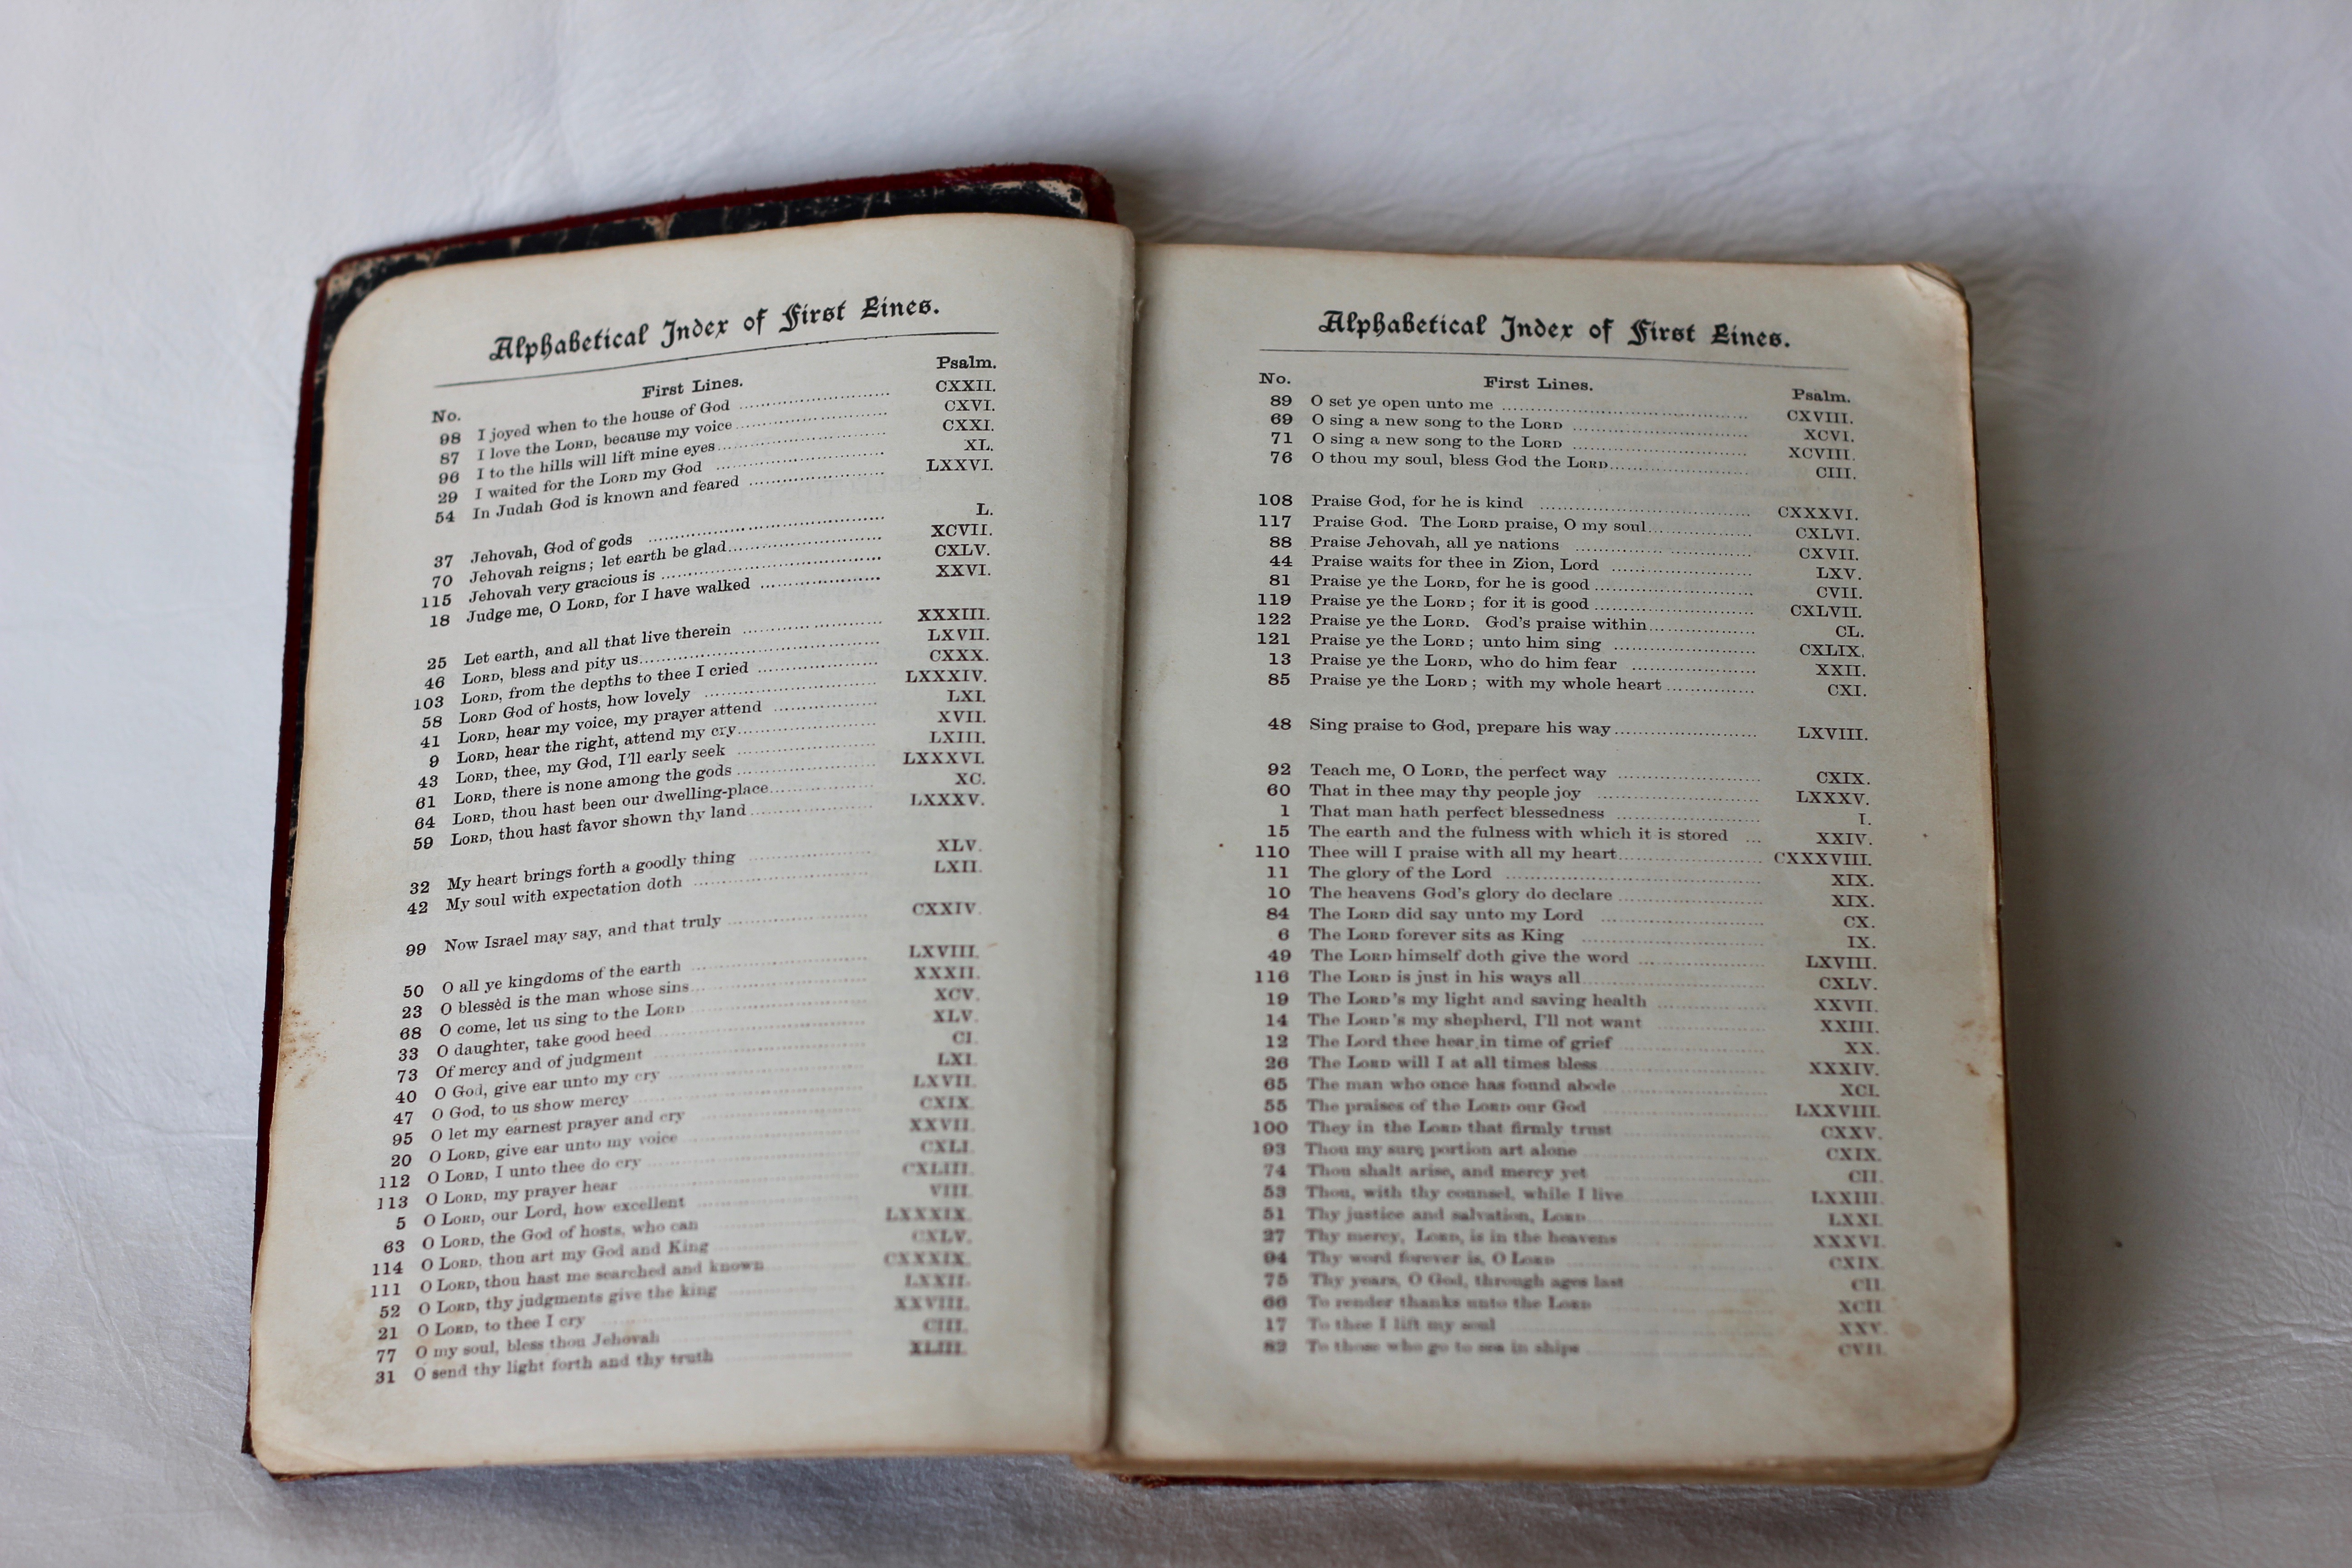 Alphabetical Index of First Lines.
No. First Lines. Psalm.
98 I joyed when to the house of God CXXII.
87 I love the LORD, because my voice CXVI.
96 I to the hills will lift mine eyes CXXI.
29 I waited for the LORD my God XL.
54 In Judah God is known and feared LXXVI.
37 Jehovah, God of gods L.
70 Jehovah reigns; let earth be glad XCVII.
115 Jehovah very gracious is CXLV.
18 Judge me, O LORD, for I have walked XXVI.
25 Let earth, and all that live therein XXXIII.
46 LORD, bless and pity us LXVII.
103 LORD, from the depths to thee I cried CXXX.
58 LORD God of hosts, how lovely LXXXIV.
41 LORD, hear my voice, my prayer attend LXI.
9 LORD, hear the right, attend my cry XVII.
43 LORD, thee, my God, I'll early seek LXIII.
61 LORD, there is none among the gods LXXXVI.
64 LORD, thou hast been our dwelling-place XC.
59 LORD, thou hast favor shown thy land LXXXV.
32 My heart brings forth a goodly thing XLV.
42 My soul with expectation doth LXII.
99 Now Israel may say, and that truly CXXIV.
50 O all ye kingdoms of the earth LXVIII.
23 O blessèd is the man whose sins XXXII.
68 O come, let us sing to the LORD XCV.
33 O daughter, take good heed XLV.
73 Of mercy and of judgment CI.
40 O God, give ear unto my cry LXI.
47 O God, to us show mercy LXVII.
95 O let my earnest prayer and cry CXIX.
20 O LORD, give ear unto my voice XXVII.
112 O LORD, I unto thee do cry CXLI.
113 O LORD, my prayer hear CXLIII.
5 O LORD, our Lord, how excellent VIII.
63 O LORD, the God of hosts, who can LXXXIX.
114 O LORD, thou art my God and King CXLV.
111 O LORD, thou hast me searched and known CXXXIX.
52 O LORD, thy judgments give the king LXXII.
21 O LORD, to thee I cry XXVIII.
77 O my soul, bless thou Jehovah CIII.
31 O send thy light forth and thy truth XLIII.
Alphabetical Index of First Lines.
No. First Lines. Psalm.
89 O set ye open unto me CXVIII.
69 O sing a new song to the LORD XCVI.
71 O sing a new song to the LORD XCVIII.
76 O thou my soul, bless God the LORD CIII.
108 Praise God, for he is kind CXXXVI.
117 Praise God. The LORD praise, O my soul CXLVI.
88 Praise Jehovah, all ye nations CXVII.
44 Praise waits for thee in Zion, Lord LXV.
81 Praise ye the LORD, for he is good CVII.
119 Praise ye the LORD; for it is good CXLVII.
122 Praise ye the LORD. God's praise within CL.
121 Praise ye the LORD; unto him sing CXLIX.
13 Praise ye the LORD, who do him fear XXII.
85 Praise ye the LORD; with my whole heart CXI.
48 Sing praise to God, prepare his way LXVIII.
92 Teach me, O LORD, the perfect way CXIX.
60 That in thee may thy people joy LXXXV.
1 That man hath perfect blessedness I.
15 The earth and the fulness with which it is stored XXIV.
110 Thee will I praise with all my heart CXXXVIII.
11 The glory of the Lord XIX.
10 The heavens God's glory do declare XIX.
84 The LORD did say unto my Lord CX.
6 The LORD forever sits as King IX.
49 The LORD himself doth give the word LXVIII.
116 The LORD is just in his ways all CXLV.
19 The LORD's my light and saving health XXVII.
14 The LORD's my shepherd, I'll not want XXIII.
12 The Lord thee hear in time of grief XX.
26 The LORD will I at all times bless XXXIV.
65 The man who once has found abode XCI.
55 The praises of the LORD our God LXXVIII.
100 They in the LORD that firmly trust CXXV.
93 Thou my sure portion art alone CXIX.
74 Thou shalt arise, and mercy yet CII.
53 Thou, with thy counsel, while I live LXXIII.
51 Thy justice and salvation, LORD LXXI.
27 Thy mercy, LORD, is in the heavens XXXVI.
94 Thy word forever is, O LORD CXIX.
75 Thy years, O God, through ages last CII.
66 To render thanks unto the LORD XCII.
17 To thee I lift my soul XXV.
82 To those who go to sea in ships CVII.